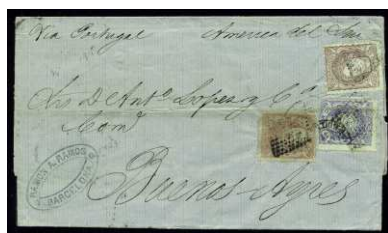 Via Portugal America del Sur
Srs D. Antº Lopez y Cª
Comº
Buenos-Ayres
RAMON A. RAMOS
BARCELONA